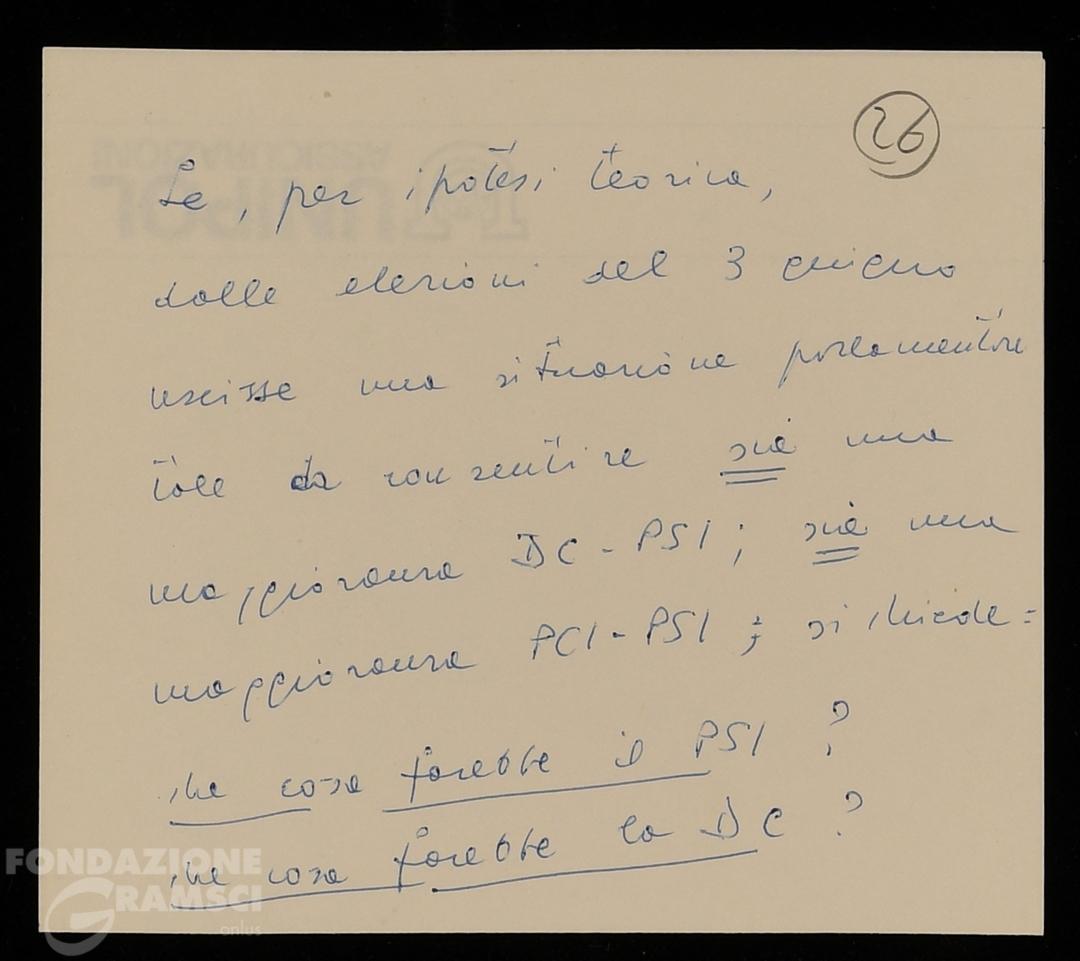 26
Se, per ipotesi teorica,
dalle elezioni del 3 giugno
uscisse una situazione parlamentare
tale da consentire sia una
maggioranza DC-PSI; sia una
maggioranza PCI-PSI; si chiede:
che cosa farebbe il PSI?
che cosa farebbe la DC?
UNIPOL
ASSICURAZIONI
FONDAZIONE
GRAMSCI
onlus